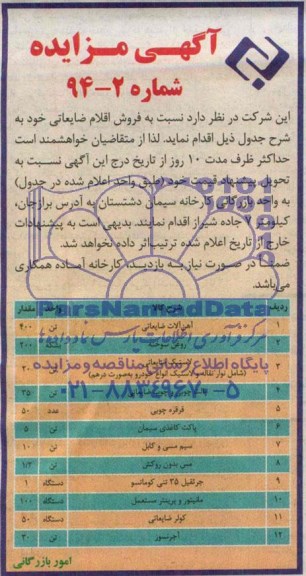 آگهی مزایده
شماره ۲-۹۴
این شرکت در نظر دارد نسبت به فروش اقلام ضایعاتی خود به
شرح جدول ذیل اقدام نماید. لذا از متقاضیان خواهشمند است
حداکثر ظرف مدت ۱۰ روز از تاریخ درج این آگهی نسبت به
تحویل پیشنهاد قیمت خود (طبق واحد اعلام شده در جدول)
به واحد بازرگانی کارخانه سیمان دشتستان به آدرس برازجان،
کیلومتر ۷ جاده شیراز اقدام نمایند. بدیهی است به پیشنهادات
خارج از تاریخ اعلام شده ترتیب اثر داده نخواهد شد.
ضمنا در صورت نیاز به بازدید، کارخانه آماده همکاری
می‌باشد.
ParsNamadData
ردیف شرح کالا واحد مقدار
۱ آهن‌آلات ضایعاتی تن ۴۰۰
۲ روغن سوخته
مرکز فرآوری اطلاعات پارس نماد داده‌ها
۳
پایگاه اطلاع رسانی مناقصه و مزایده
(شامل نوار نقاله و لاستیک انواع خودرو به‌صورت درهم)
۰۲۱-۸۸۳۴۹۶۷۰-۵
۴ تن ۳۵
۵ قرقره چوبی عدد ۵۰
۶ پاکت کاغذی سیمان تن ۵
۷ سیم مسی و کابل تن ۱۰
۸ مس بدون روکش تن ۱/۳
۹ جرثقیل ۲۵ تنی کوماتسو دستگاه ۱
۱۰ مانیتور و پرینتر مستعمل دستگاه ۱۰۰
۱۱ کولر ضایعاتی دستگاه ۵۰
۱۲ آجر نسوز تن ۳۰
امور بازرگانی